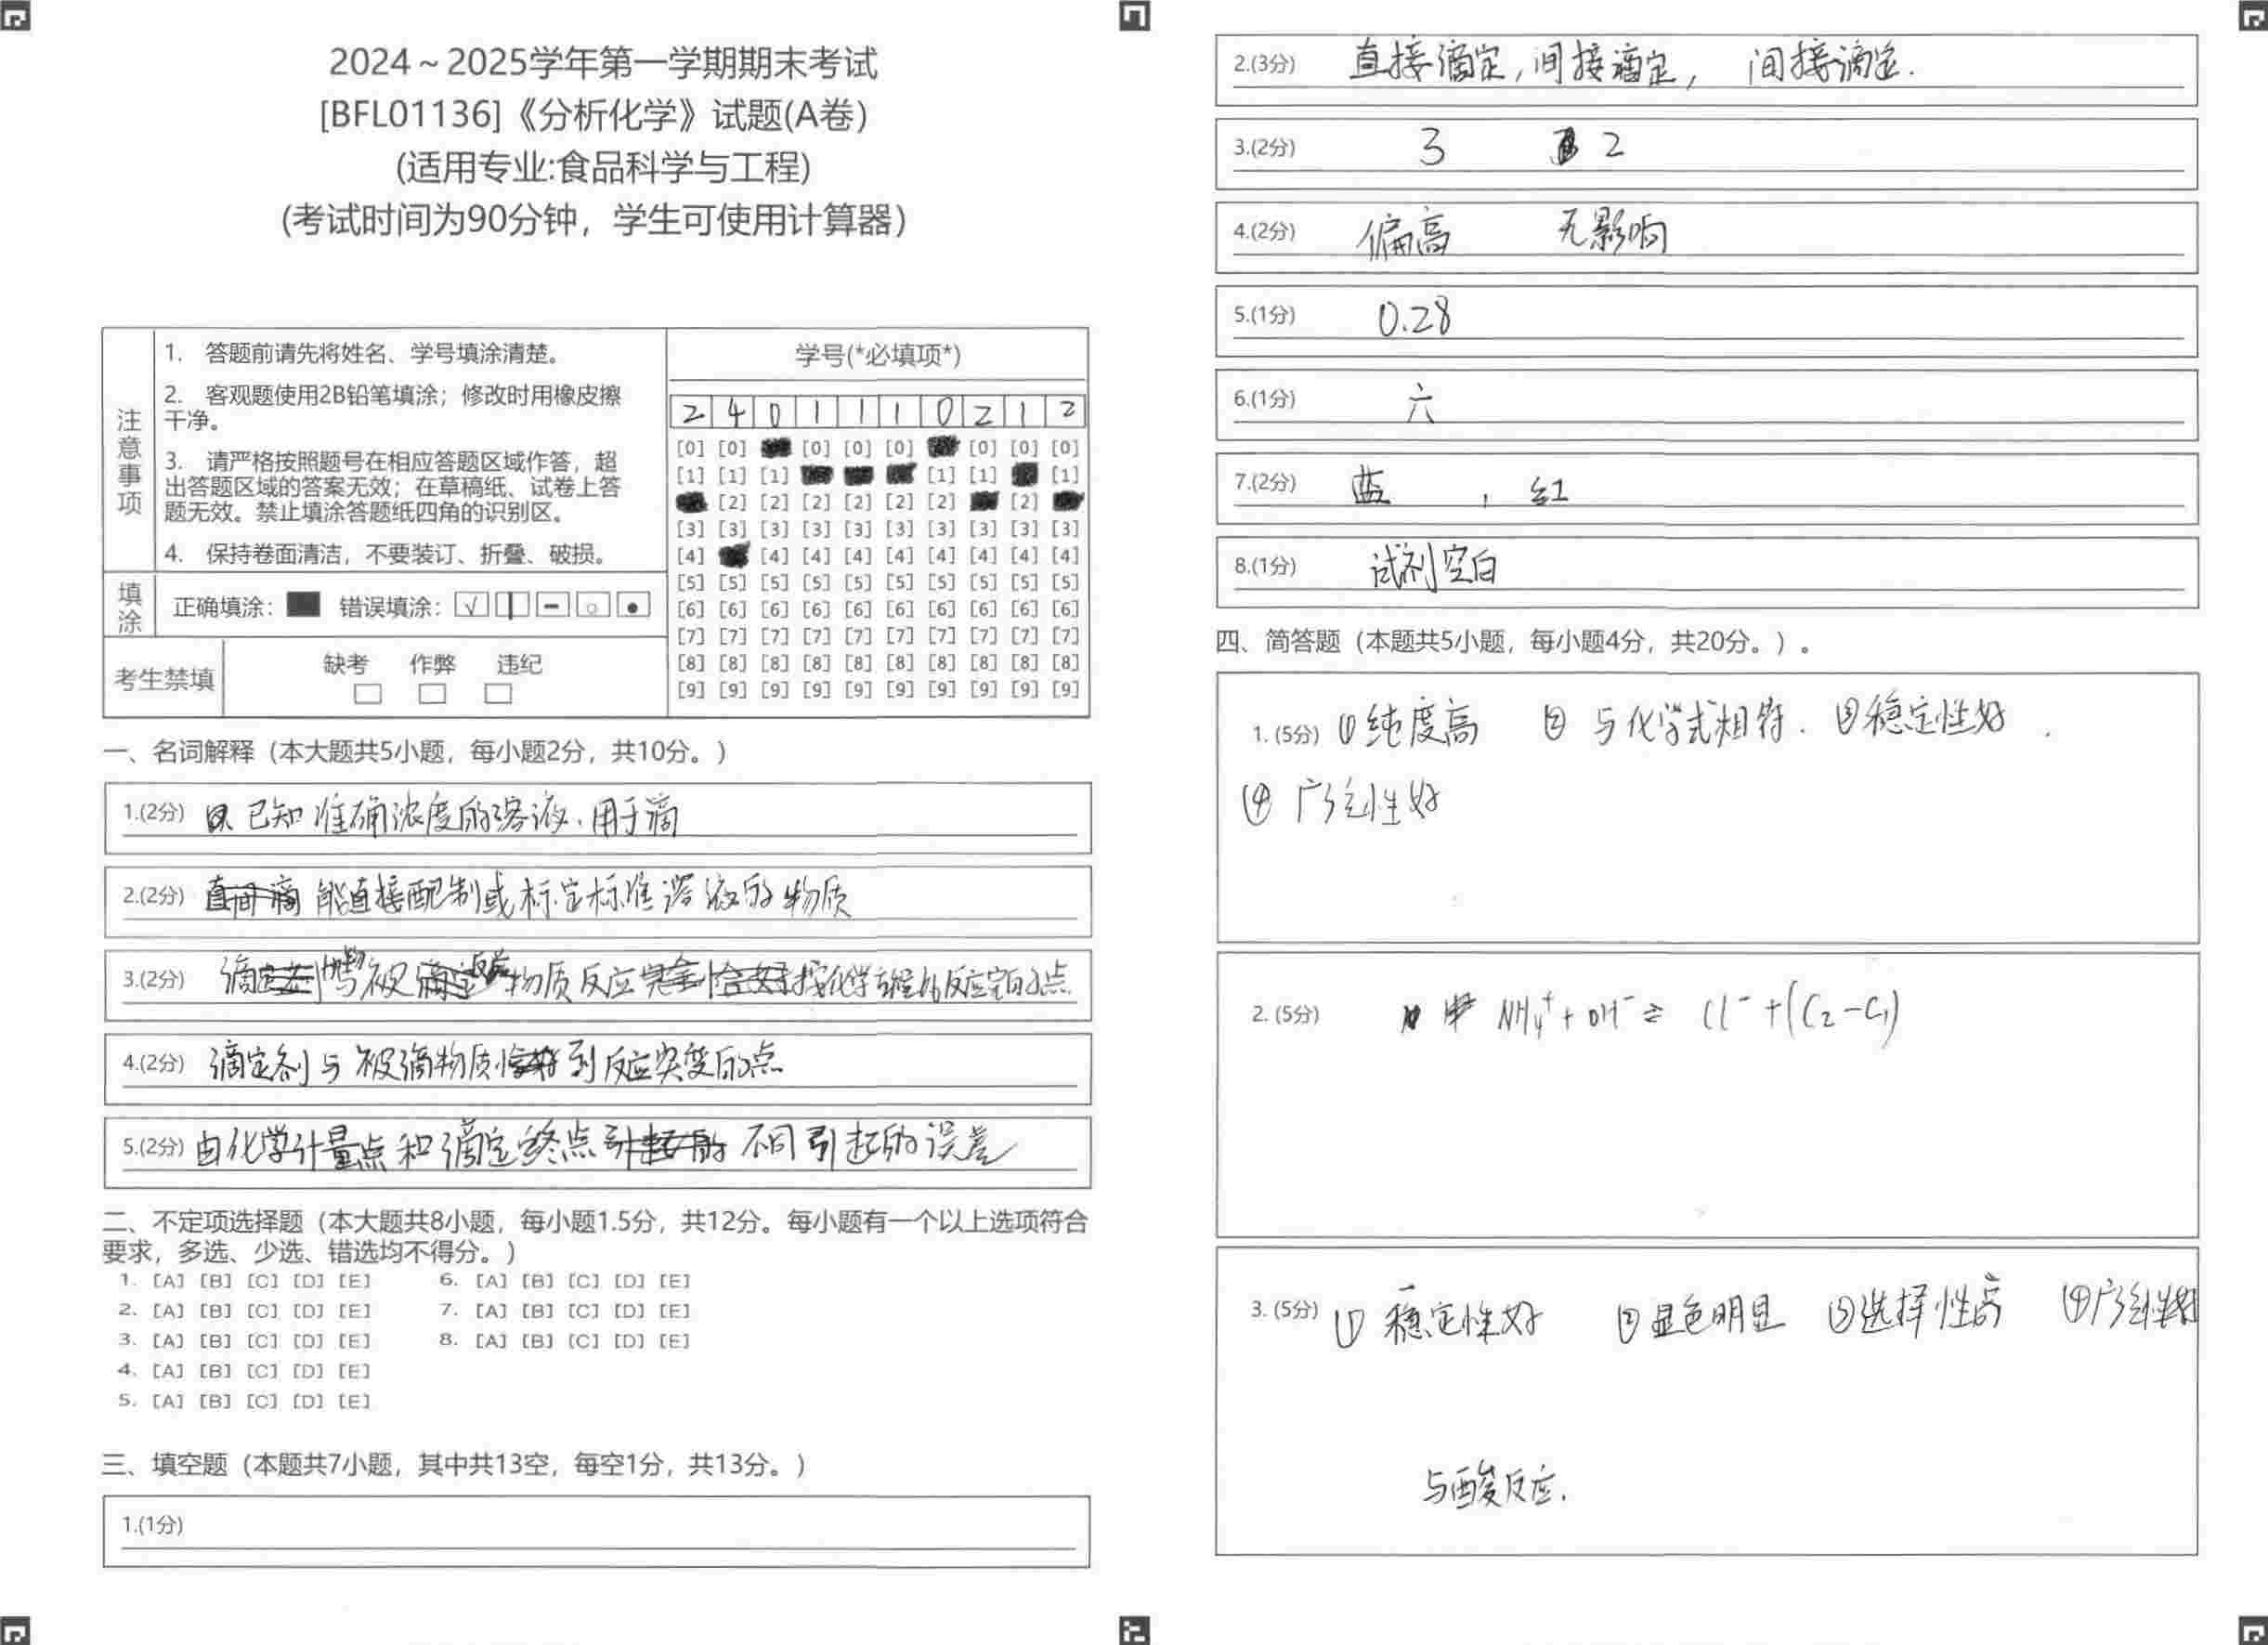 2024～2025学年第一学期期末考试
[BFL01136]《分析化学》试题(A卷)
(适用专业:食品科学与工程)
(考试时间为90分钟，学生可使用计算器)
注意事项
1. 答题前请先将姓名、学号填涂清楚。
2. 客观题使用2B铅笔填涂；修改时用橡皮擦
干净。
3. 请严格按照题号在相应答题区域作答，超
出答题区域的答案无效；在草稿纸、试卷上答
题无效。禁止填涂答题纸四角的识别区。
4. 保持卷面清洁，不要装订、折叠、破损。
填涂
正确填涂： 错误填涂：
考生禁填
缺考 作弊 违纪
学号(*必填项*)
2 4 0 1 1 1 0 2 1 2
[0] [0] [0] [0] [0] [0] [0] [0]
[1] [1] [1] [1] [1] [1]
[2] [2] [2] [2] [2] [2] [2]
[3] [3] [3] [3] [3] [3] [3] [3] [3] [3]
[4] [4] [4] [4] [4] [4] [4] [4] [4]
[5] [5] [5] [5] [5] [5] [5] [5] [5] [5]
[6] [6] [6] [6] [6] [6] [6] [6] [6] [6]
[7] [7] [7] [7] [7] [7] [7] [7] [7] [7]
[8] [8] [8] [8] [8] [8] [8] [8] [8] [8]
[9] [9] [9] [9] [9] [9] [9] [9] [9] [9]
一、名词解释（本大题共5小题，每小题2分，共10分。）
1.(2分) 已知准确浓度的溶液.用于滴
2.(2分) 能直接配制或标定标准溶液的物质
3.(2分) 滴 与被 物质反应 按化学 反应 的点.
4.(2分) 滴定剂与被滴物质 到反应突变的点
5.(2分) 由化学计量点和滴定终点 不同引起的误差
二、不定项选择题（本大题共8小题，每小题1.5分，共12分。每小题有一个以上选项符合
要求，多选、少选、错选均不得分。）
1. [A] [B] [C] [D] [E] 6. [A] [B] [C] [D] [E]
2. [A] [B] [C] [D] [E] 7. [A] [B] [C] [D] [E]
3. [A] [B] [C] [D] [E] 8. [A] [B] [C] [D] [E]
4. [A] [B] [C] [D] [E]
5. [A] [B] [C] [D] [E]
三、填空题（本题共7小题，其中共13空，每空1分，共13分。）
1.(1分)
2.(3分) 直接滴定,间接滴定, 间接滴定.
3.(2分) 3 2
4.(2分) 偏高 无影响
5.(1分) 0.28
6.(1分) 六
7.(2分) 蓝 , 红
8.(1分) 试剂空白
四、简答题（本题共5小题，每小题4分，共20分。）。
1. (5分) ①纯度高 ② 与化学式相符. ③稳定性好.
④ 广泛性好
2. (5分) NH₄⁺+OH⁻⇌ Cl⁻+(C₂-C₁)
3. (5分) ① 稳定性好 ②显色明显 ③选择性高 ④广泛性好
与酸反应.